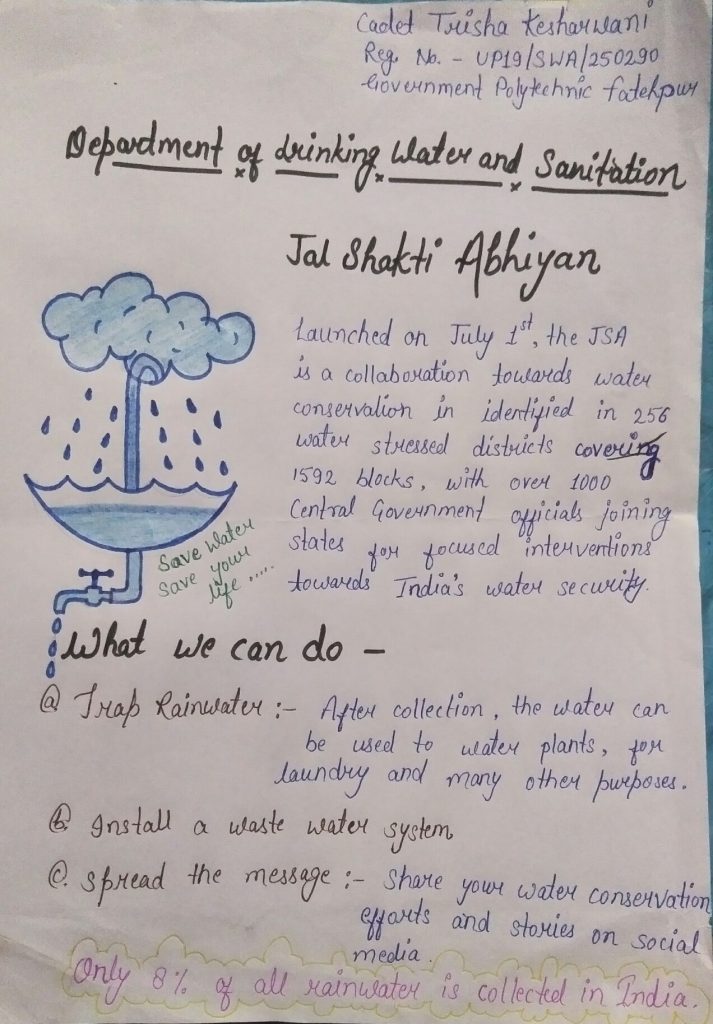 Cadet Trisha Kesharwani
Reg. No. - UP19/SWA/250290
Government Polytechnic fatehpur
Department of drinking Water and Sanitation
Jal Shakti Abhiyan
Launched on July 1st, the JSA
is a collaboration towards water
conservation in identified in 256
water stressed districts covering
1592 blocks, with over 1000
Central Government officials joining
states for focused interventions
towards India's water security.
Save Water
save your
life .....
What we can do -
@ Trap Rainwater :- After collection, the water can
be used to water plants, for
laundry and many other purposes.
b. Install a waste water system
c. spread the message :- Share your water conservation
efforts and stories on social
media.
Only 8% of all rainwater is collected in India.